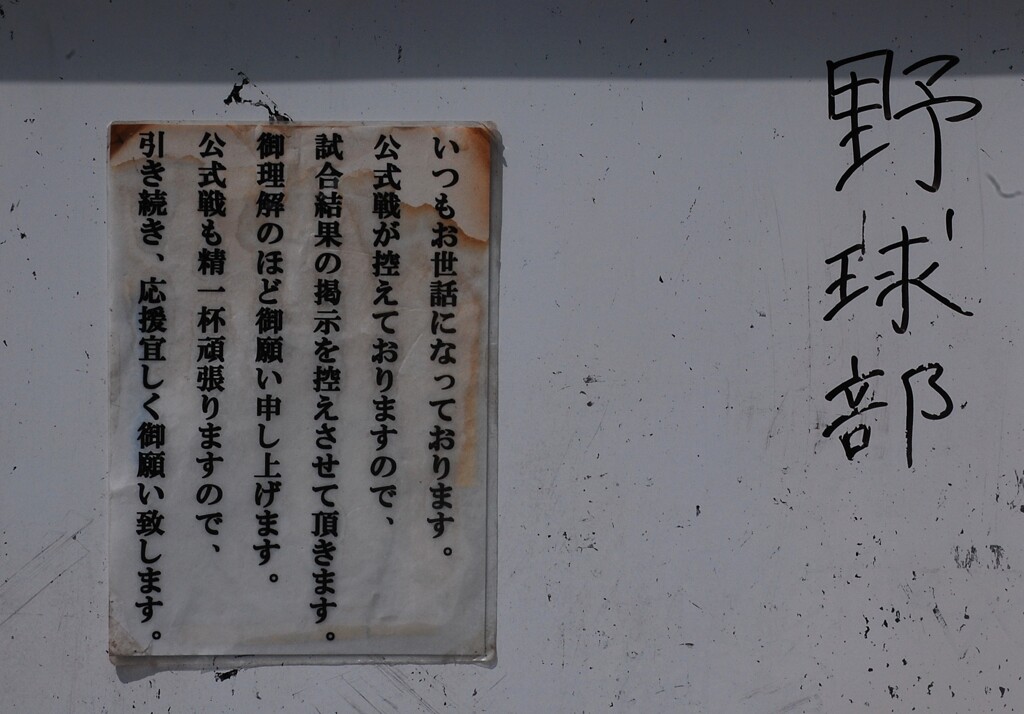 野球部
いつもお世話になっております。
公式戦が控えておりますので、
試合結果の掲示を控えさせて頂きます。
御理解のほど御願い申し上げます。
公式戦も精一杯頑張りますので、
引き続き、応援宜しく御願い致します。